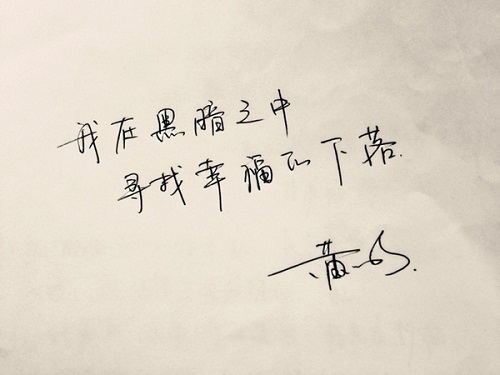 我在黑暗之中
寻找幸福的下落.
黄